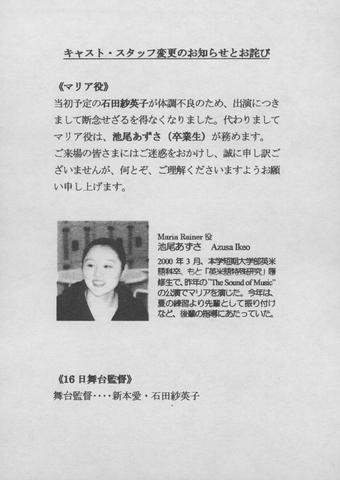 キャスト・スタッフ変更のお知らせとお詫び
《マリア役》
当初予定の石田紗英子が体調不良のため、出演につき
まして断念せざるを得なくなりました。代わりまして
マリア役は、池尾あずさ（卒業生）が務めます。
ご来場の皆さまにはご迷惑をおかけし、誠に申し訳ご
ざいませんが、何とぞ、ご理解くださいますようお願
い申し上げます。
Maria Rainer 役
池尾あずさ Azusa Ikeo
2000 年 3 月、本学短期大学部英米
語科卒。もと「英米語特殊研究」履
修生で、昨年の "The Sound of Music"
の公演でマリアを演じた。今年は、
夏の練習より先輩として振り付け
など、後輩の指導にあたっていた。
《16 日舞台監督》
舞台監督････新本愛・石田紗英子